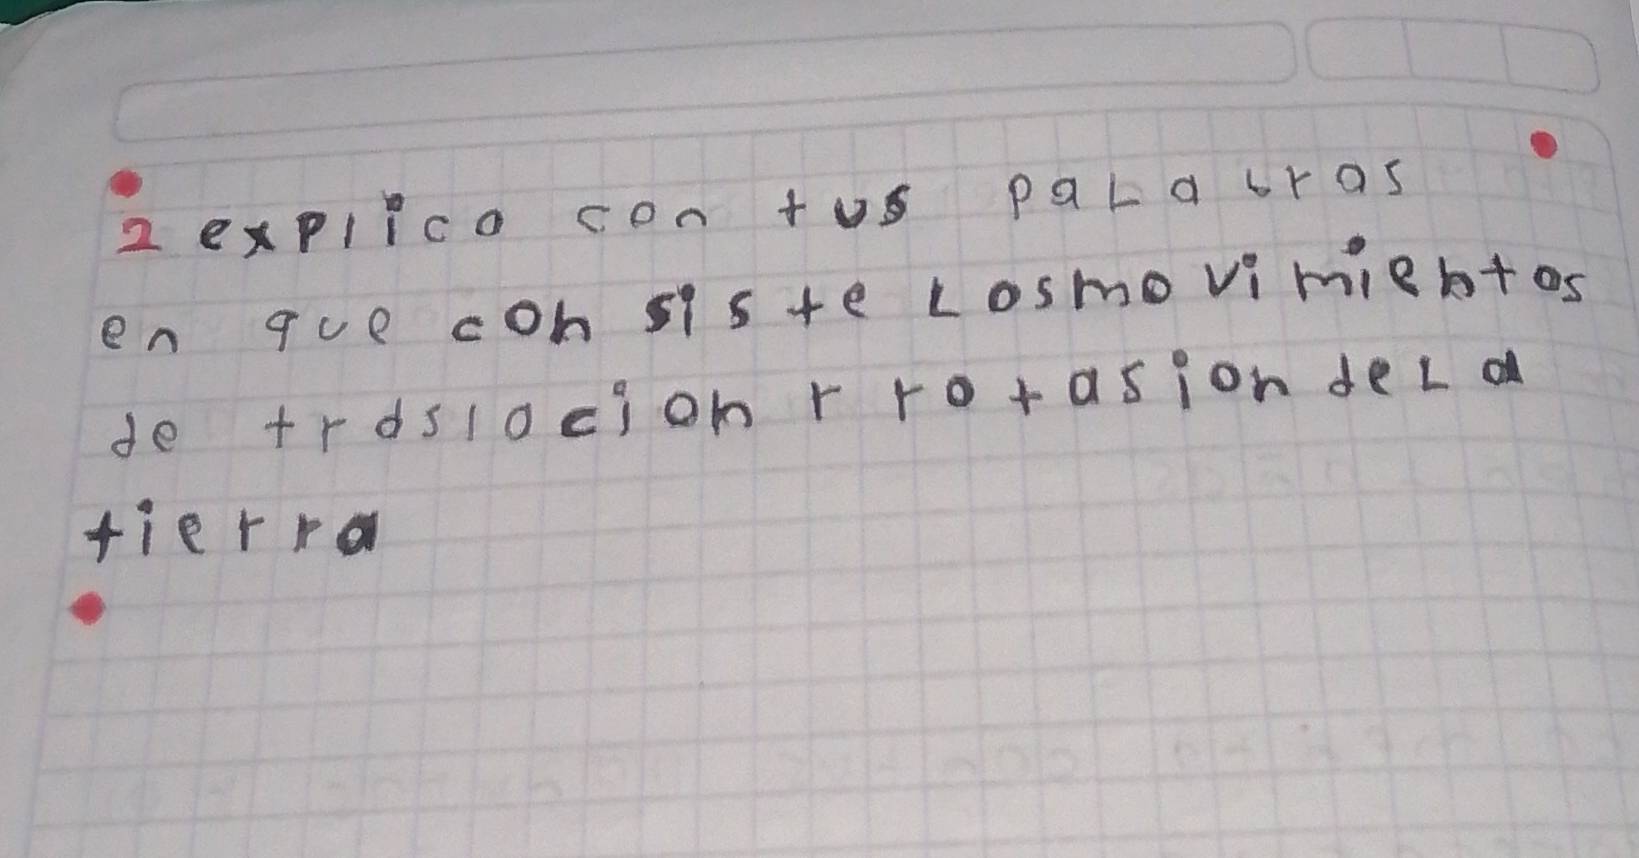 2 explica con tus palabras
en que consiste los movimientos
de traslacion r rotasion de la
tierra